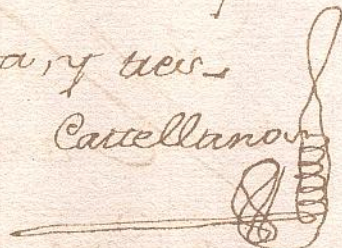 a, y tres
Castellanos